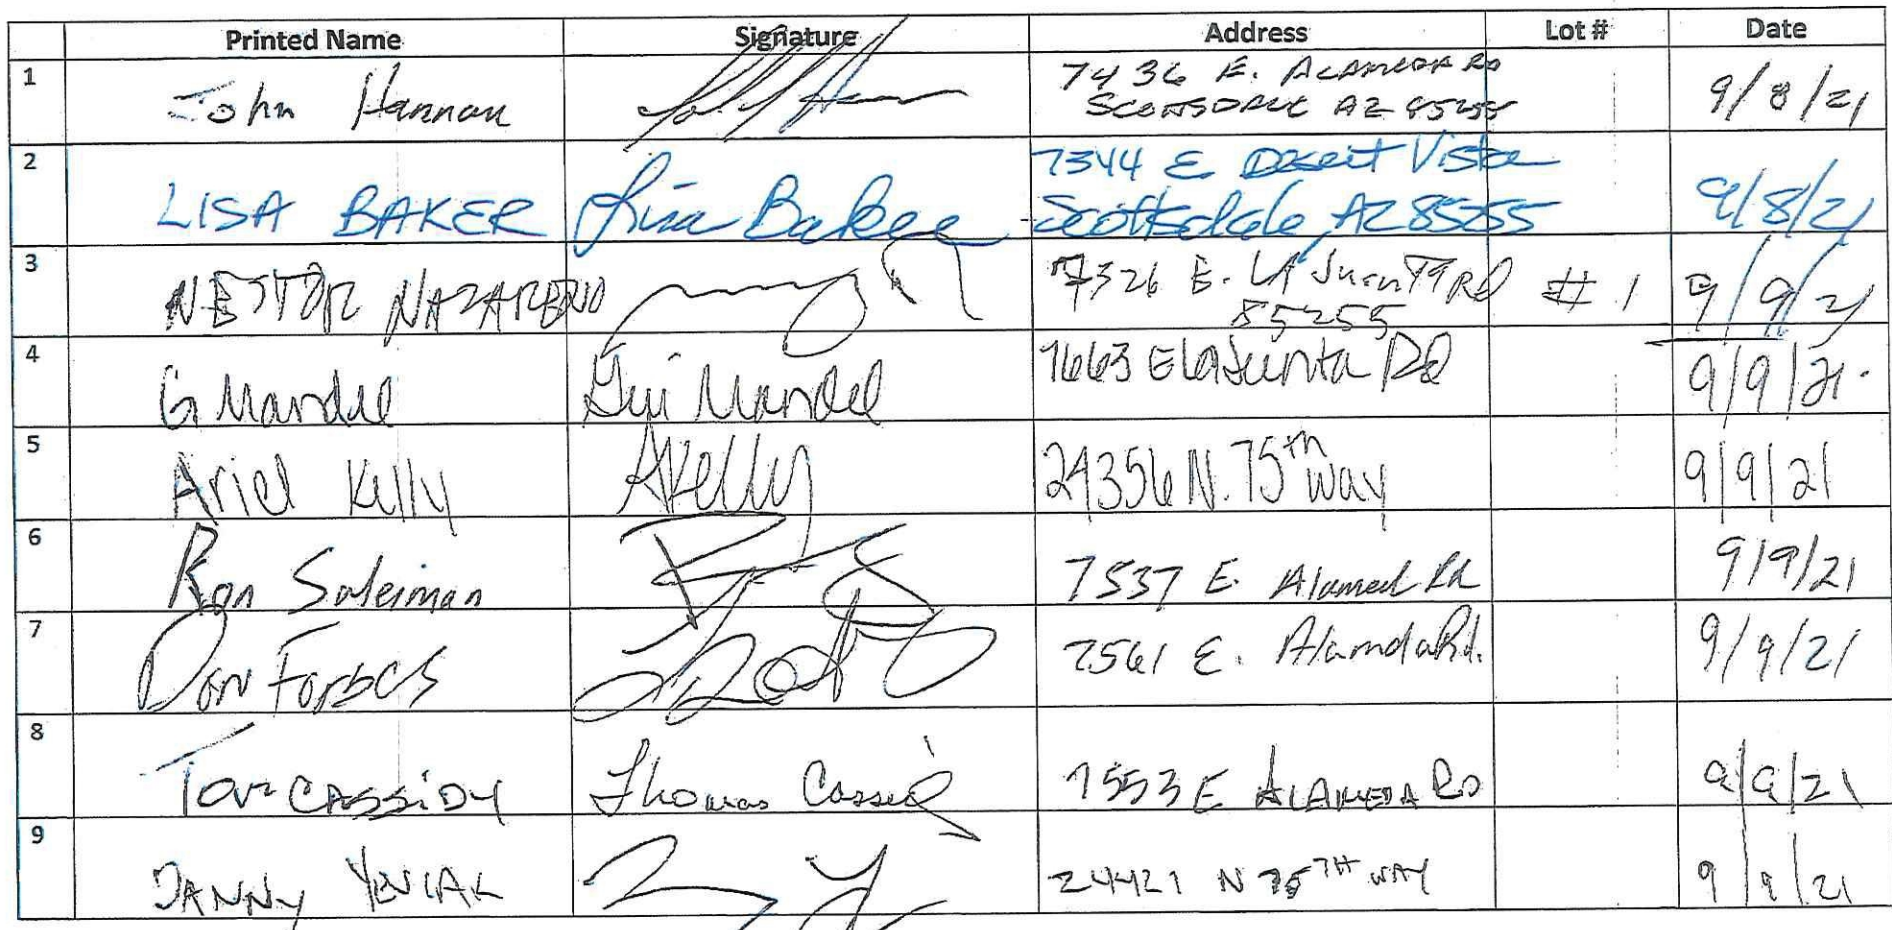 Printed Name Signature Address Lot # Date
1 John Hannan 7436 E. ALAMEDA RD
SCOTTSDALE AZ 85255 9/8/21
2 LISA BAKER Lisa Baker 7344 E Desert Vista
Scottsdale, AZ 85255 9/8/21
3 NESTOR NAZARENO 7326 E. LA JUNTA RD # 1 9/9/21
85255
4 G Mandel Mandel 7663 E La Junta Rd 9/9/21.
5 Ariel Kelly AKelly 24356 N. 75th way 9/9/21
6 Ron Suleiman 7537 E. Alamed Rd 9/9/21
7 Don Forbes 7561 E. Alamda Rd. 9/9/21
8 Tom CASSIDY Thomas Cassidy 7553 E ALAMEDA RD 9/9/21
9 DANNY 24421 N 75TH WAY 9/9/21